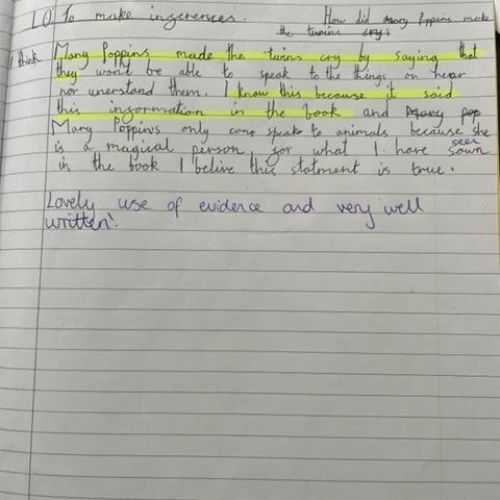 LO: To make inferences. How did Mary Poppins make
the twins cry
I think Mary Poppins made the twins cry by saying that
they won't be able to speak to the things or hear
nor unerstand them. I know this because it said
this information in the book and Mary pop
Mary Poppins only can speak to animals because she
is a magical person, for what I have seen
in the book I belive this statment is true.
Lovely use of evidence and very well
written!